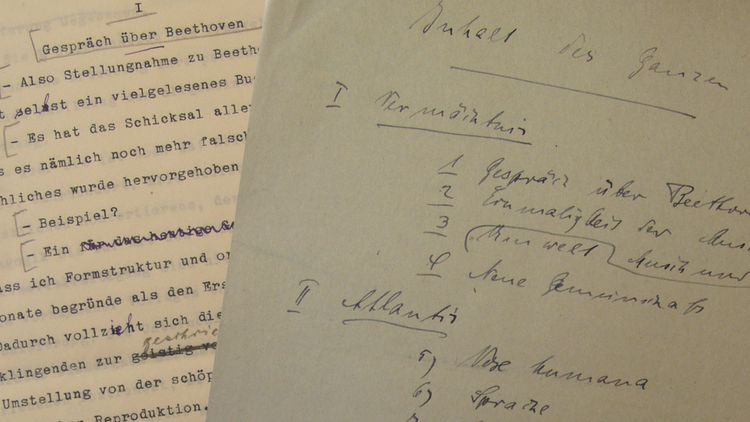 I
Gespräch über Beethoven
- Also Stellungnahme zu Beeth
selbst ein vielgelesenes Bu
- Es hat das Schicksal alle
s es nämlich noch mehr falsc
hliches wurde hervorgehoben
- Beispiel?
- Ein für das heutige
ss ich Formstruktur und or
onate begründe als den Ers
Dadurch vollzieht sich die
geschrie
klingenden zur geistig ve
Umstellung von der schöp
Reproduktion.
Inhalt des Ganzen
I Vermächtnis
1 Gespräch über Beethov
2 Einmaligkeit der Musi
3 Umwelt Musik und
4 Neue Gemeinschaft
II Atlantis
5) Vox humana
6) Sprache